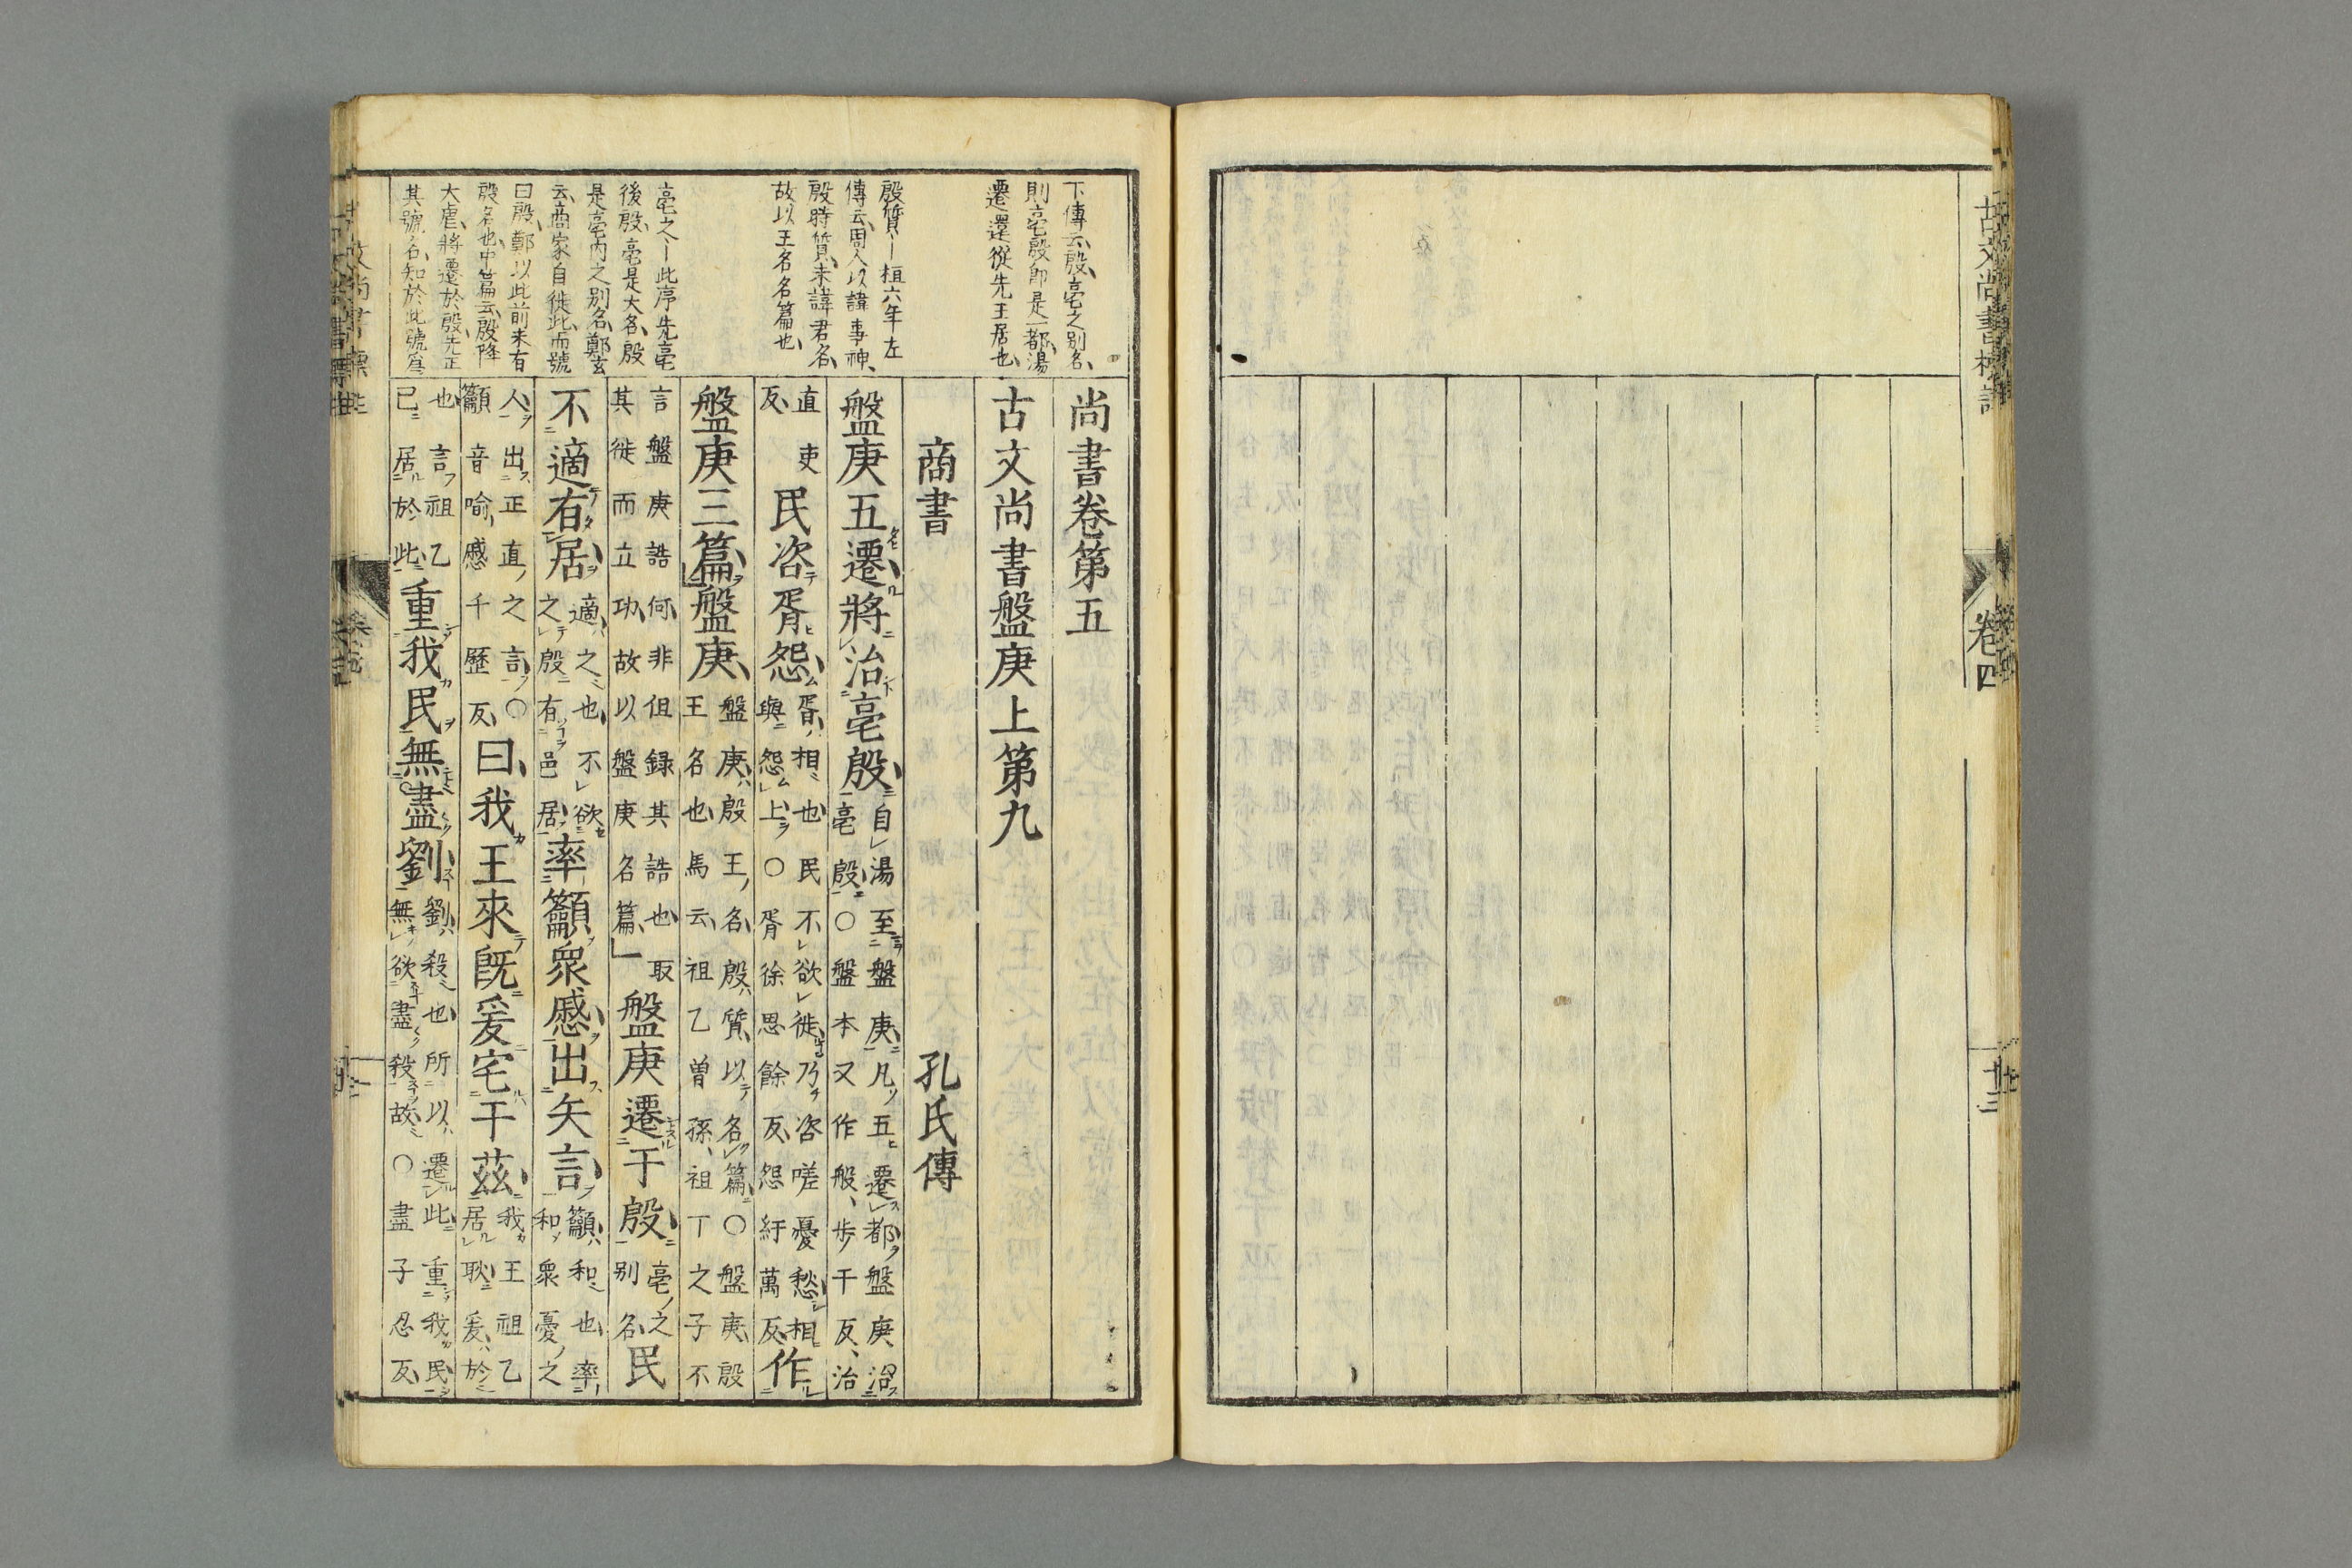 卷四
廿三
下傳云殷亳之別名
則亳殷即是一都湯
遷還從先王居也
殷質〡桓六年左
傳云周人以諱事神
殷時質未諱君名
故以王名名篇也
亳之〡此序先亳
後殷亳是大名殷
是亳內之別名鄭玄
云商家自徙此而號
曰殷鄭以此前未有
殷名也中篇云殷降
大虐將遷於殷先正
其號名知於此號為
尚書卷第五
古文尚書盤庚上第九
商書 孔氏傳
盤庚五遷將治亳殷 自湯至盤庚凡五遷都盤庚治亳殷〇盤本又作般步干反治
直吏反 民咨胥怨 胥相也民不欲徙乃咨嗟憂愁相與怨上〇胥徐思餘反怨紆萬反 作
盤庚三篇盤庚 盤庚殷王名殷質以名篇〇盤庚殷王名也馬云祖乙曽孫祖丁之子不
言盤庚誥何非但録其誥也取其徙而立功故以盤庚名篇 盤庚遷于殷 亳之別名 民
不適有居 適之也不欲之殷有邑居 率籲衆慼出矢言 籲和也率和衆憂之
人出正直之言〇籲音喻慼千歷反 曰我王來既爰宅于茲 我王祖乙居耿爰於
也言祖乙已居於此 重我民無盡劉 劉殺也所以遷此重我民無欲盡殺故〇盡子忍反